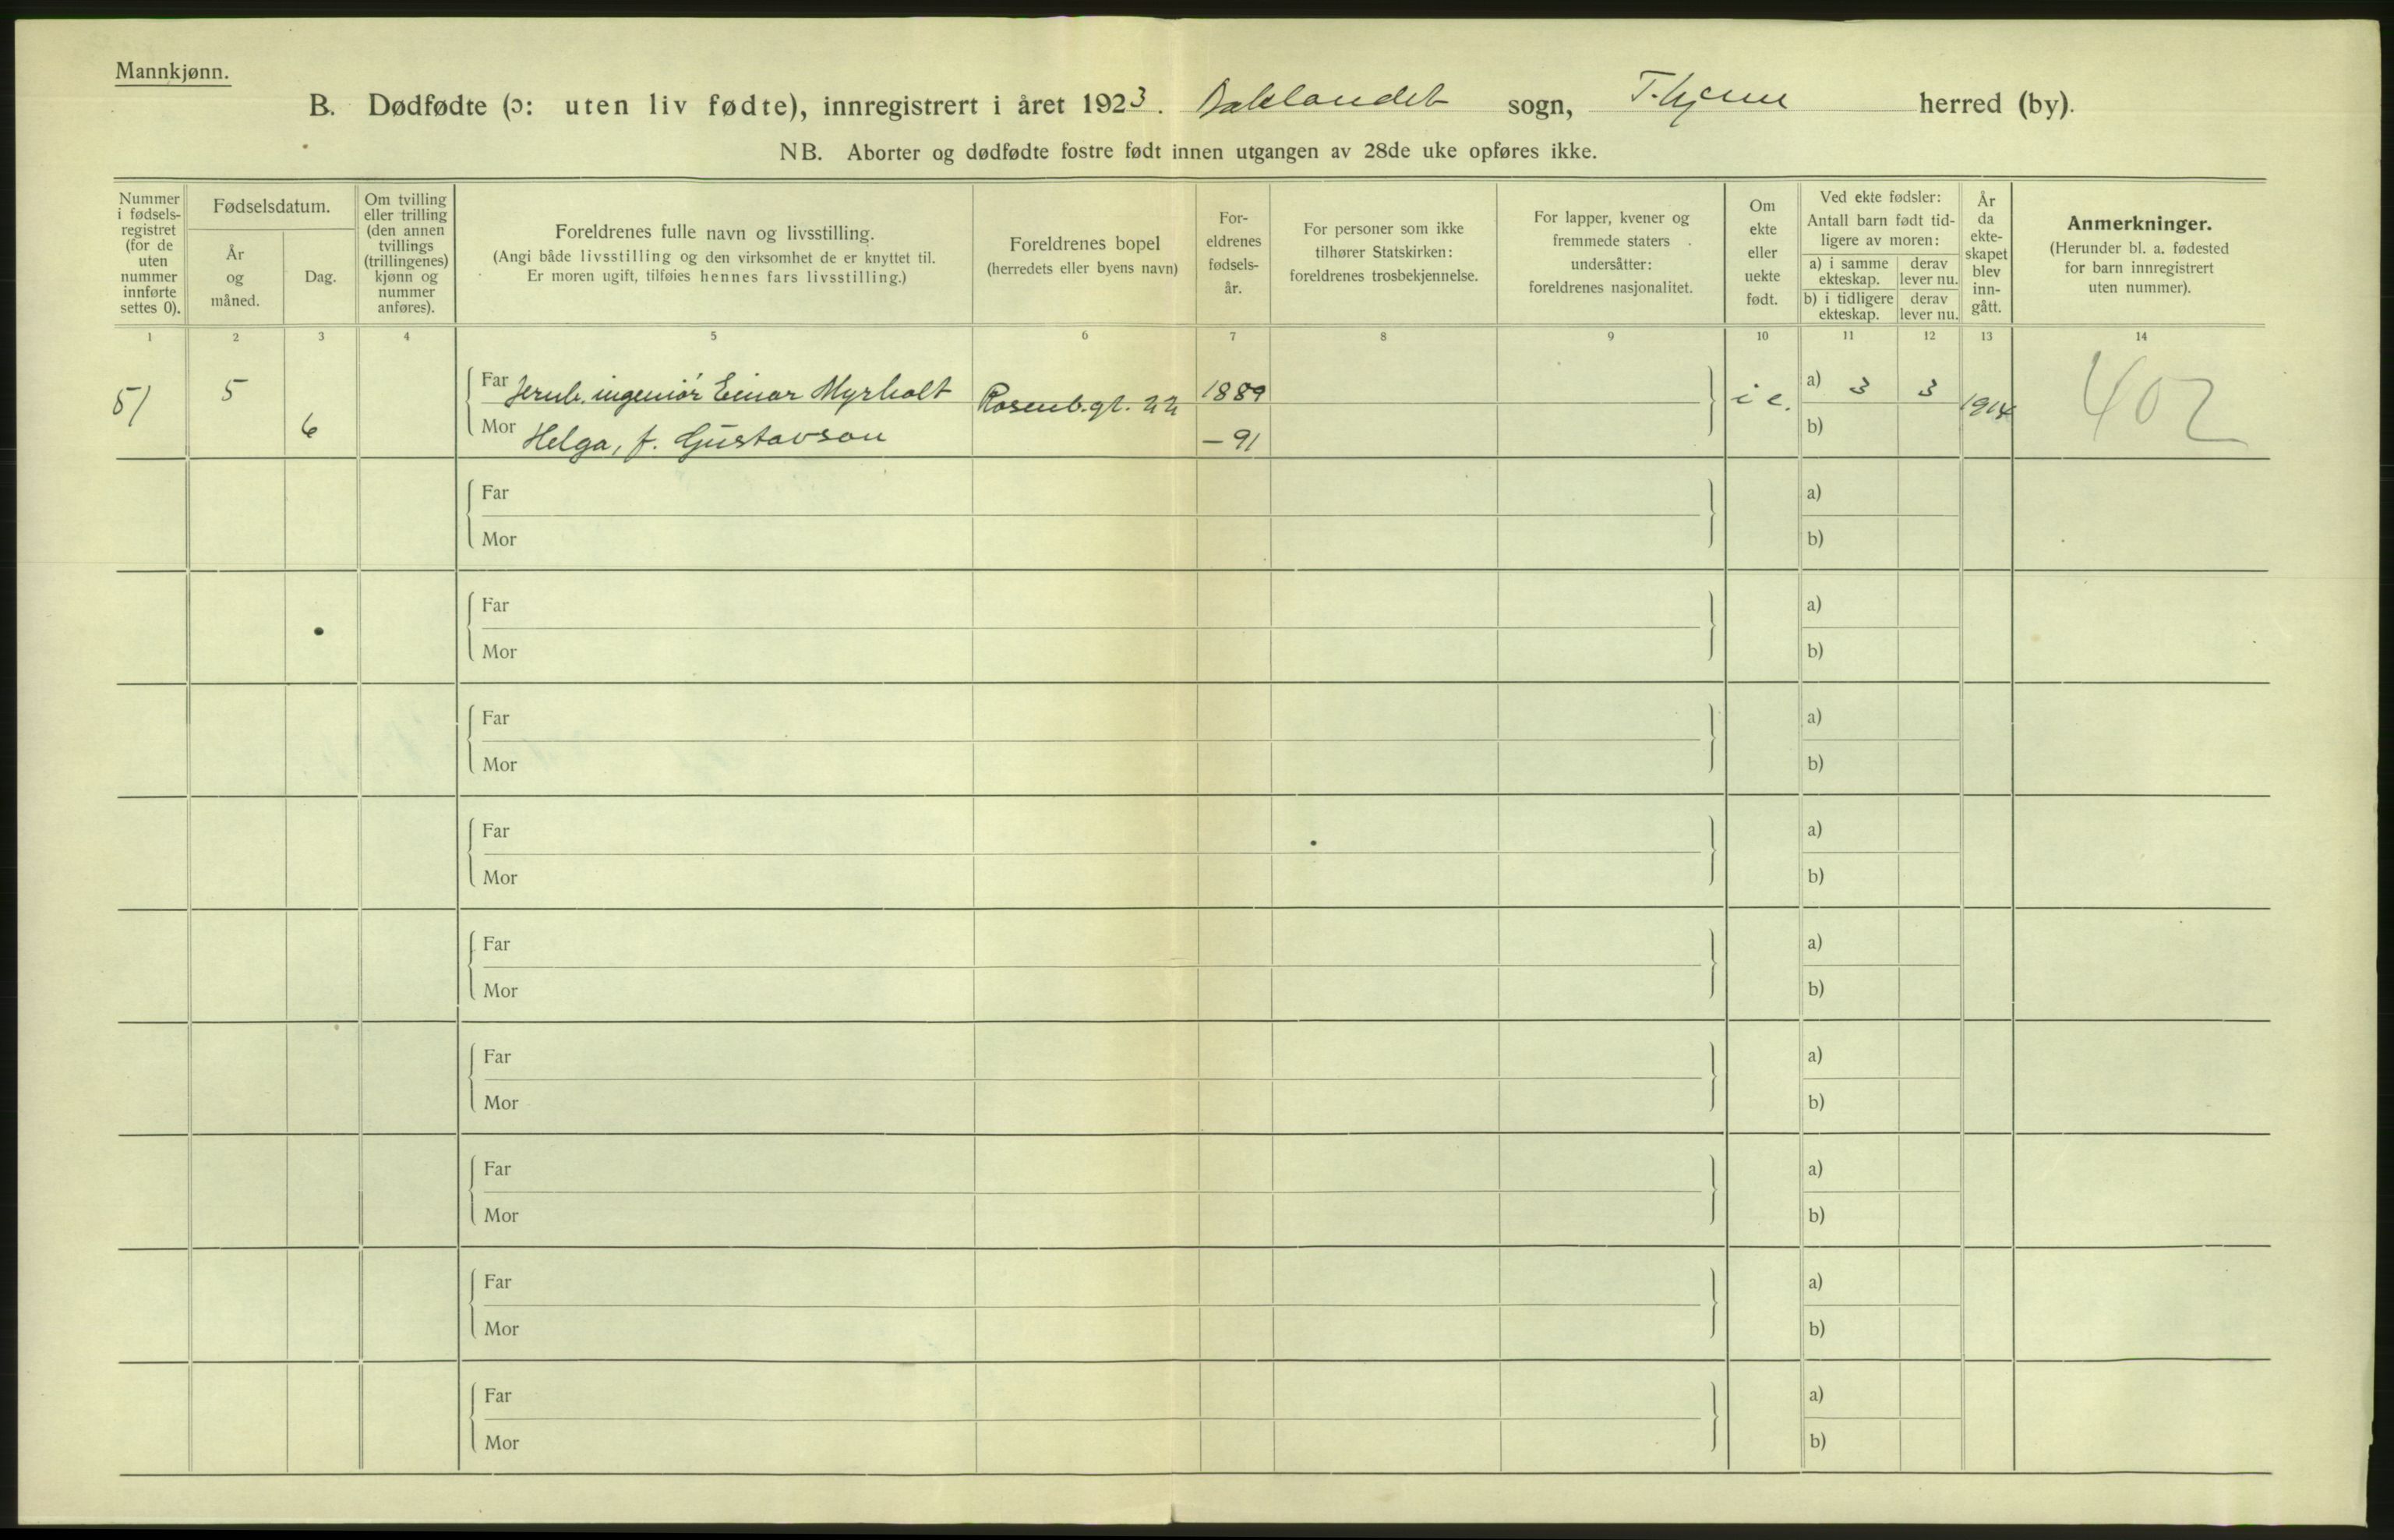 Mannkjønn.
B. Dødfødte (ɔ: uten liv fødte), innregistrert i året 1923. Baklandet sogn, T.hjem herred (by).
NB. Aborter og dødfødte fostre født innen utgangen av 28de uke opføres ikke.
Nummer
i fødsels-
registret
(for de
uten
nummer
innførte
settes 0).
Fødselsdatum.
År
og
måned.
Dag.
Om tvilling
eller trilling
(den annen
tvillings
(trillingenes)
kjønn og
nummer
anføres).
Foreldrenes fulle navn og livsstilling.
(Angi både livsstilling og den virksomhet de er knyttet til.
Er moren ugift, tilføies hennes fars livsstilling.)
Foreldrenes bopel
(herredets eller byens navn)
For-
eldrenes
fødsels-
år.
For personer som ikke
tilhører Statskirken:
foreldrenes trosbekjennelse.
For lapper, kvener og
fremmede staters
undersåtter:
foreldrenes nasjonalitet.
Om
ekte
eller
uekte
født.
Ved ekte fødsler:
Antall barn født tid-
ligere av moren:
a) i samme
ekteskap.
derav
lever nu.
b) i tidligere
ekteskap.
derav
lever nu.
År
da
ekte-
skapet
blev
inn-
gått.
Anmerkninger.
(Herunder bl. a. fødested
for barn innregistrert
uten nummer).
1 2 3 4 5 6 7 8 9 10 11 12 13 14
51 5 6 Far Jernb. ingeniör Einar Myrholt Rosenb.gt. 22 1889 i e. a) 3 3 1914 402
Mor Helga, f. Gustavson - 91 b)
Far a)
Mor b)
Far a)
Mor b)
Far a)
Mor b)
Far a)
Mor b)
Far a)
Mor b)
Far a)
Mor b)
Far a)
Mor b)
Far a)
Mor b)
Far a)
Mor b)